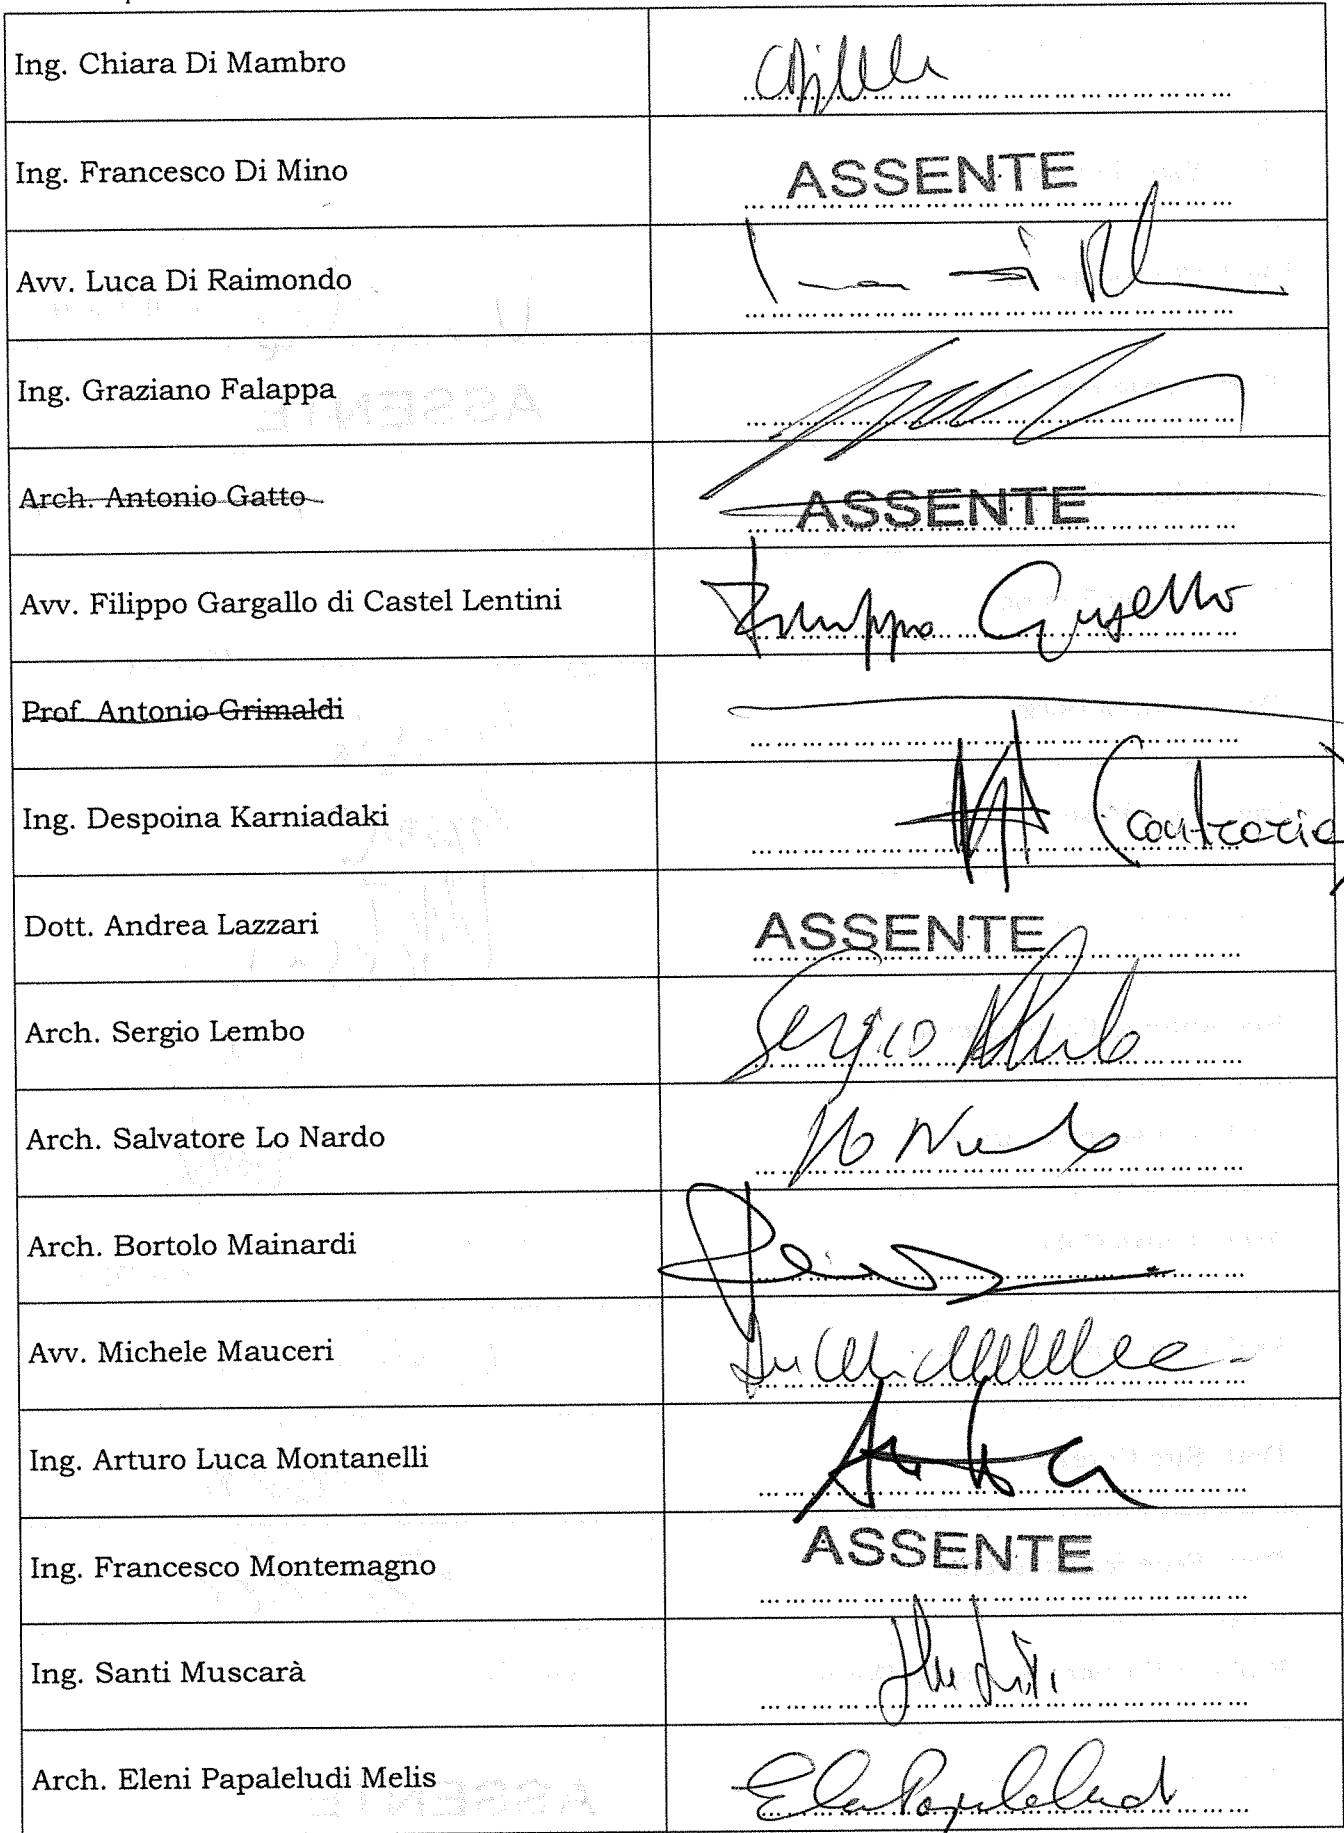 Ing. Chiara Di Mambro
Ing. Francesco Di Mino ASSENTE
Avv. Luca Di Raimondo
Ing. Graziano Falappa
Arch. Antonio Gatto ASSENTE
Avv. Filippo Gargallo di Castel Lentini Filippo Gargallo
Prof. Antonio Grimaldi
Ing. Despoina Karniadaki (Contrario)
Dott. Andrea Lazzari ASSENTE
Arch. Sergio Lembo Sergio Lembo
Arch. Salvatore Lo Nardo Lo Nardo
Arch. Bortolo Mainardi
Avv. Michele Mauceri
Ing. Arturo Luca Montanelli
Ing. Francesco Montemagno ASSENTE
Ing. Santi Muscarà
Arch. Eleni Papaleludi Melis